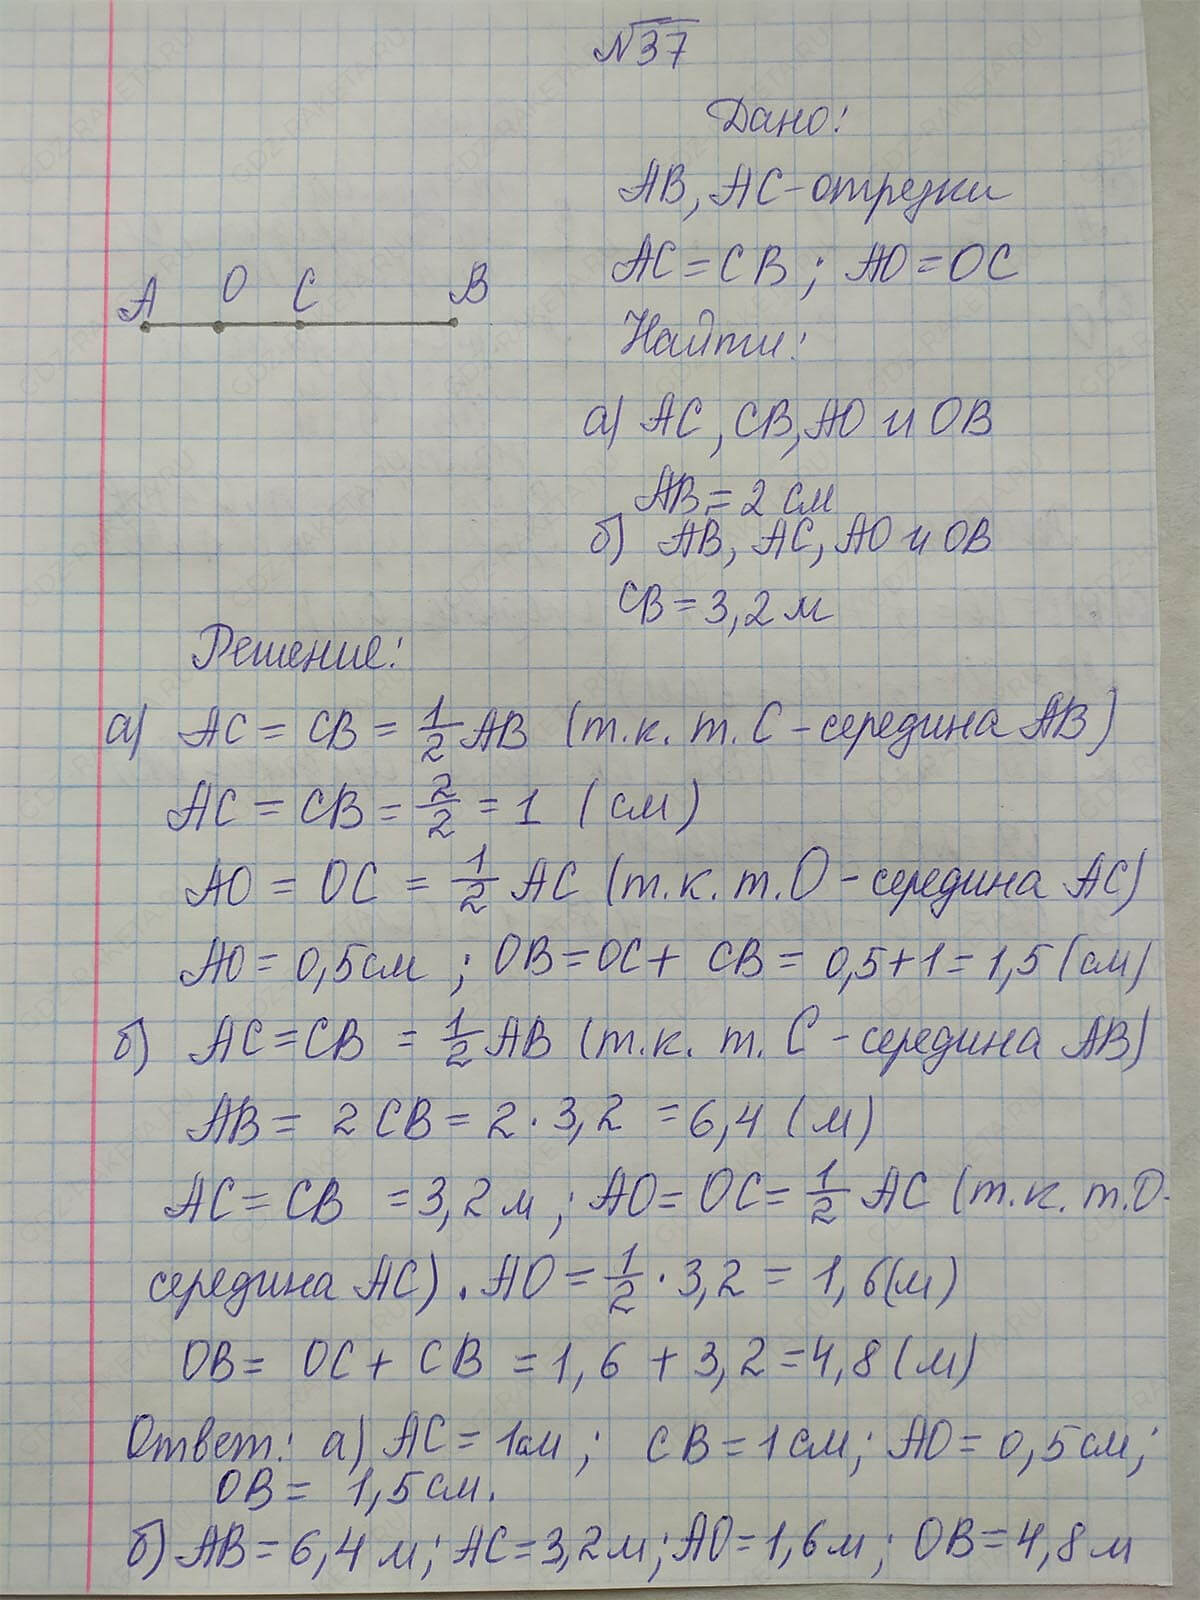 №37
Дано:
AB, AC - отрезки
AC = CB; AO = OC
A O C B
Найти:
а) AC, CB, AO и OB
AB = 2 см
б) AB, AC, AO и OB
CB = 3,2 м
Решение:
а) AC = CB = 1/2 AB (т.к. т. C - середина AB)
AC = CB = 2/2 = 1 (см)
AO = OC = 1/2 AC (т.к. т. O - середина AC)
AO = 0,5 см; OB = OC + CB = 0,5 + 1 = 1,5 (см)
б) AC = CB = 1/2 AB (т.к. т. C - середина AB)
AB = 2 CB = 2 · 3,2 = 6,4 (м)
AC = CB = 3,2 м; AO = OC = 1/2 AC (т.к. т. O -
середина AC). AO = 1/2 · 3,2 = 1,6 (м)
OB = OC + CB = 1,6 + 3,2 = 4,8 (м)
Ответ: а) AC = 1 см; CB = 1 см; AO = 0,5 см;
OB = 1,5 см.
б) AB = 6,4 м; AC = 3,2 м; AO = 1,6 м; OB = 4,8 м